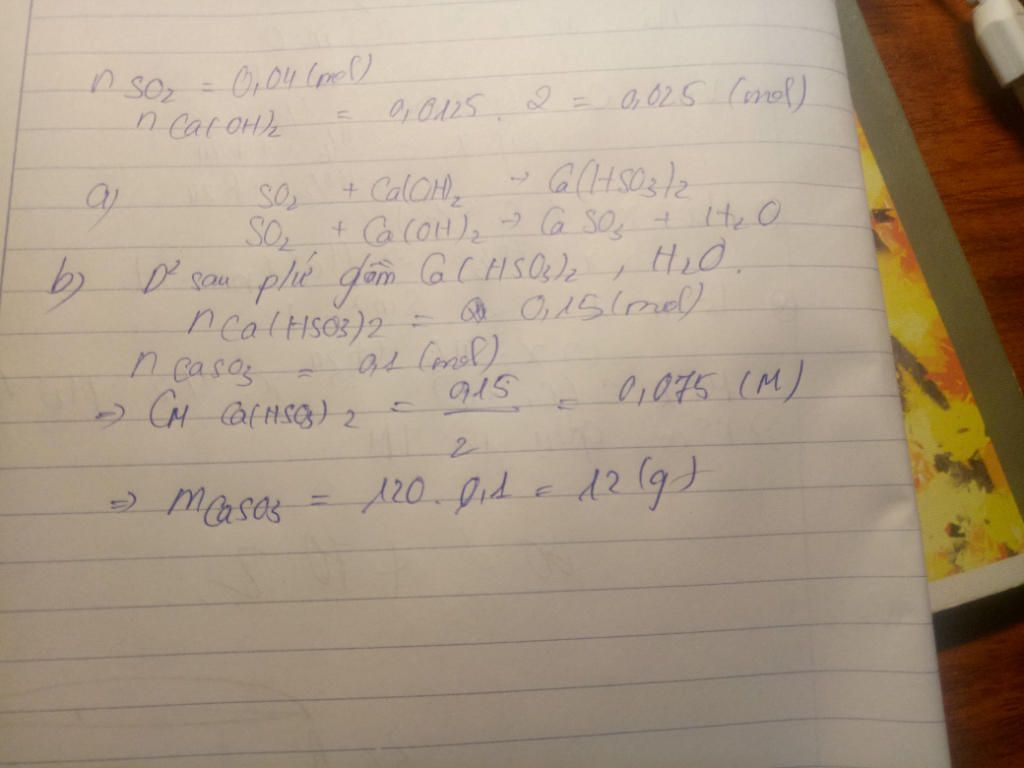 n SO2 = 0,04 (mol)
n Ca(OH)2 = 0,0125 . 2 = 0,025 (mol)
a) SO2 + Ca(OH)2 → Ca(HSO3)2
SO2 + Ca(OH)2 → CaSO3 + H2O
b) D² sau p/ứ gồm Ca(HSO3)2, H2O.
n Ca(HSO3)2 = 0,15 (mol)
n CaSO3 = 0,1 (mol)
=> CM Ca(HSO3)2 = 0,15 / 2 = 0,075 (M)
=> mCaSO3 = 120 . 0,1 = 12 (g)